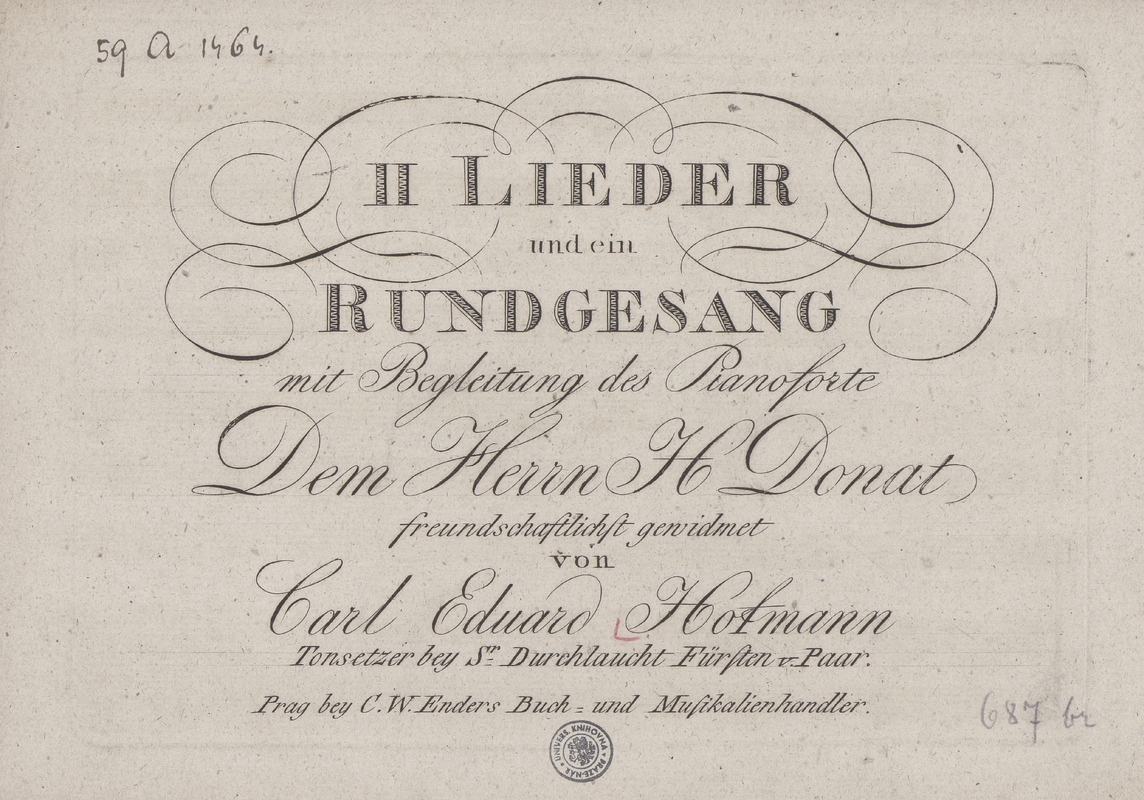 59 A 1464.
II LIEDER
und ein
RUNDGESANG
mit Begleitung des Pianoforte
Dem Herrn H Donat
freundschaftlichſt gewidmet
von
Carl Eduard Hofmann
Tonsetzer bey Sr. Durchlaucht Fürſten v. Paar.
Prag bey C. W. Enders Buch = und Muſikalienhandler.
687 br
UNIVERS. KNIHOVNA • PRAZE-NÁR •